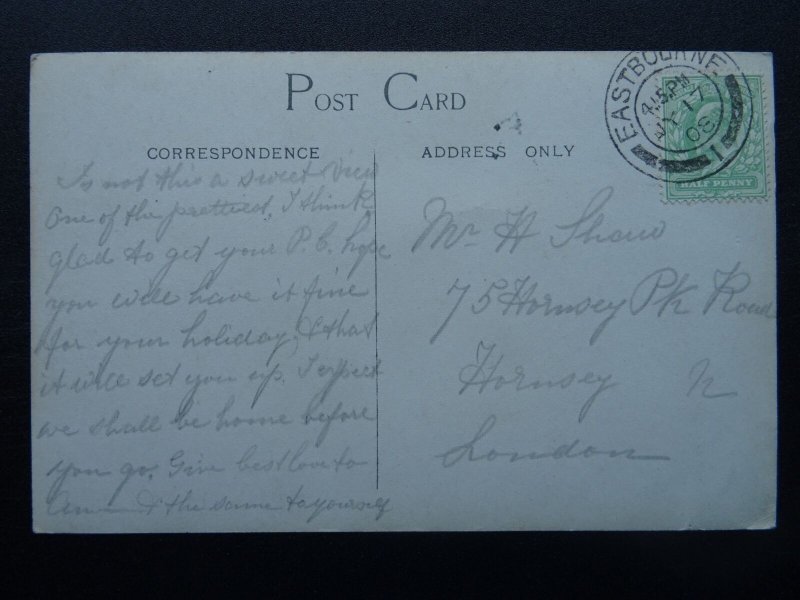 POST CARD
CORRESPONDENCE
ADDRESS ONLY
EASTBOURNE
4.15 PM
17
08
1
HALF PENNY
Is not this a sweet View
One of the prettiest, I think
glad to get your P.C. hope
you will have it fine
for your holiday, & that
it will set you up. I expect
we shall be home before
you go. Give best love to
& the same to yourself
Mr H Shaw
75 Hornsey Pk Road
Hornsey N
London